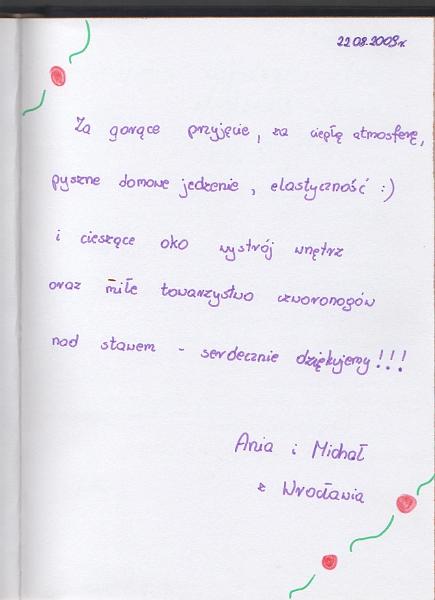 22.08.2009r.
Za gorące przyjęcie, za ciepłą atmosferę,
pyszne domowe jedzenie, elastyczność :)
i cieszące oko wystrój wnętrz
oraz miłe towarzystwo czworonogów
nad stawem - serdecznie dziękujemy!!!
Ania i Michał
z Wrocławia